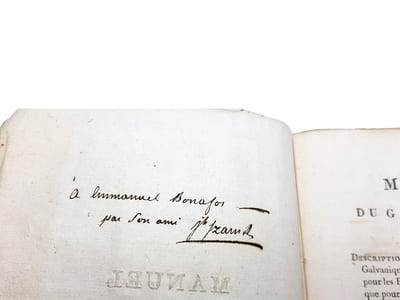 à Emmanuel Bonafos —
par son ami jh Izarn
MANUEL
M
DU G
DESCRIPTION
Galvaniqu
pour les
que pour